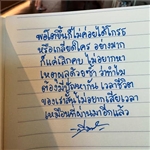 พอโตขึ้นก็ไม่ค่อยได้โกรธ
หรือเกลียดใคร อย่างมาก
ก็แค่เลิกคบ ไม่อยากหา
เหตุผลด้วยซ้ำ ว่าทำไม
ต้องมีปัญหากัน เวลาชีวิต
ของเราสั้นไม่อยากเสียเวลา
เหมือนที่ผ่านมาอีกแล้ว